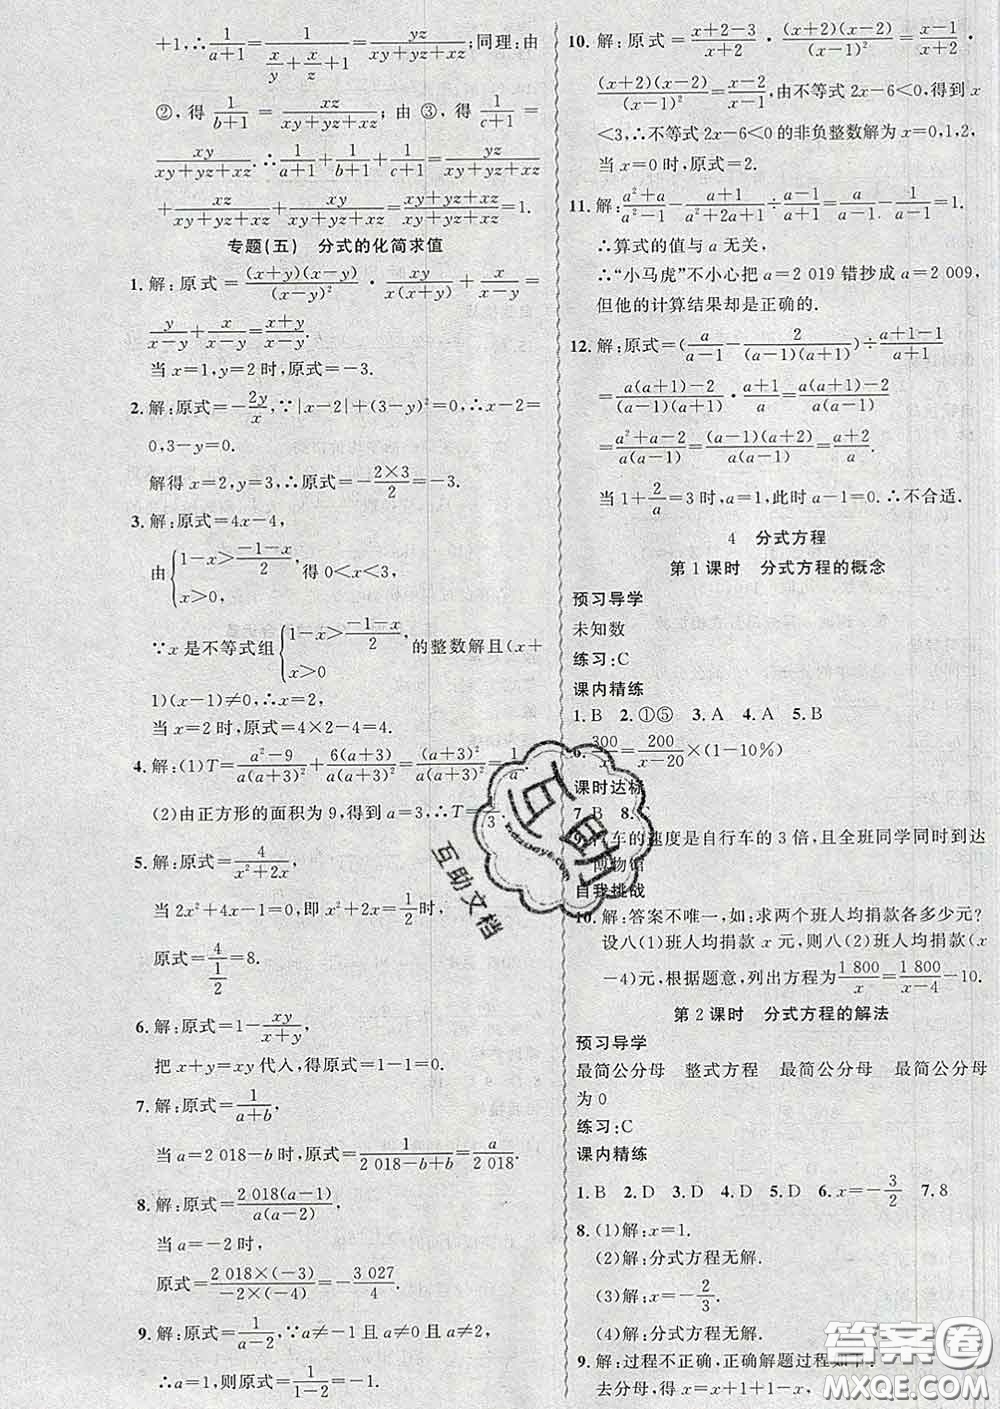 +1,∴1/(a+1)=1/(x/y+x/z+1)=yz/(xy+yz+xz);同理:由
②,得1/(b+1)=xz/(xy+yz+xz);由③,得1/(c+1)=
xy/(xy+yz+xz).∴1/(a+1)+1/(b+1)+1/(c+1)=yz/(xy+yz+xz)
+xz/(xy+yz+xz)+xy/(xy+yz+xz)=(xy+yz+xz)/(xy+yz+xz)=1.
专题(五) 分式的化简求值
1.解:原式=(x+y)(x-y)/(x-y)²·xy/x(x+y)+
y/(x-y)=y/(x-y)+x/(x-y)=(x+y)/(x-y).
当x=1,y=2时,原式=-3.
2.解:原式=-2y/x,∵|x-2|+(3-y)²=0,∴x-2=
0,3-y=0.
解得x=2,y=3,∴原式=-(2×3)/2=-3.
3.解:原式=4x-4,
由{1-x>(-1-x)/2, x>0 得0<x<3,
∵x是不等式组{1-x>(-1-x)/2, x>0 的整数解且(x+
1)(x-1)≠0,∴x=2,
当x=2时,原式=4×2-4=4.
4.解:(1)T=(a²-9)/a(a+3)²+6(a+3)/a(a+3)²=(a+3)²/a(a+3)²=1/a
(2)由正方形的面积为9,得到a=3,∴T=1/3.
5.解:原式=4/(x²+2x)
当2x²+4x-1=0,即x²+2x=1/2时,
原式=4/(1/2)=8.
6.解:原式=1-xy/(x+y),
把x+y=xy代人,得原式=1-1=0.
7.解:原式=1/(a+b),
当a=2 018-b时,原式=1/(2 018-b+b)=a/2 018.
8.解:原式=2 018(a-1)/a(a-2)
当a=-2时,
原式=2 018×(-3)/-2×(-4)=-3 027/4.
9.解:原式=1/(a-2),∵a≠-1且a≠0且a≠2,
∴a=1,则原式=1/(1-2)=-1.
10.解:原式=(x+2-3)/(x+2)·(x+2)(x-2)/(x-1)²=(x-1)/(x+2)·
(x+2)(x-2)/(x-1)²=(x-2)/(x-1),由不等式2x-6<0,得到x
<3,∴不等式2x-6<0的非负整数解为x=0,1,2,
当x=0时,原式=2.
11.解:(a²+a)/(a²-1)·(a+1)/(a²+2a+1)÷(a-1)/(a+1)... =1.
∴算式的值与a无关,
∴“小马虎”不小心把a=2 019错抄成a=2 009,
但他的计算结果却是正确的.
12.解:原式=(a/(a-1)-2/(a-1)(a+1))÷(a+1-1)/(a+1)
=(a(a+1)-2)/(a-1)(a+1)·(a+1)/a=(a(a+1)-2)/a(a-1)
=(a²+a-2)/a(a-1)=(a-1)(a+2)/a(a-1)=(a+2)/a.
当1+2/a=3时,a=1,此时a-1=0.∴不合适.
4 分式方程
第1课时 分式方程的概念
预习导学
未知数
练习:C
课内精练
1.B 2.①⑤ 3.A 4.A 5.B
6.300/x=200/(x-20)×(1-10%)
课时达标
7.B 8.
车的速度是自行车的3倍,且全班同学同时到达
博物馆
自我挑战
10.解:答案不唯一,如:求两个班人均捐款各多少元?
设八(1)班人均捐款x元,则八(2)班人均捐款(x
-4)元,根据题意,列出方程为1 800/x=1 800/(x-4)-10.
第2课时 分式方程的解法
预习导学
最简公分母 整式方程 最简公分母 最简公分母
为0
练习:C
课内精练
1.B 2.D 3.D 4.D 5.D 6.x=-3/2 7.8
8.(1)解:x=1.
(2)解:分式方程无解.
(3)解:x=-2/3.
(4)解:分式方程无解.
9.解:过程不正确,正确解题过程如下:
去分母,得x=x+1+1-x,
互助
互助文档
答案圈
MXQE.COM